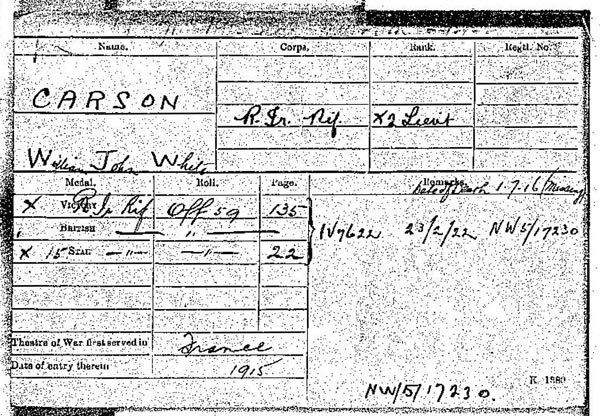 Name. Corps. Rank. Regtl. No.
CARSON
R. Ir. Rif. X 2 Lieut
William John White
Medal. Roll. Page. Remarks.
Date of Death 1.7.16 (Missing)
X VICTORY R Ir Rif Off 59 135
BRITISH — " — — " —
X 15 STAR — " — — " — 22
IV7622 23/2/22 NW5/17230
Theatre of War first served in France
Date of entry therein 1915
K. 1380
NW/5/17230.